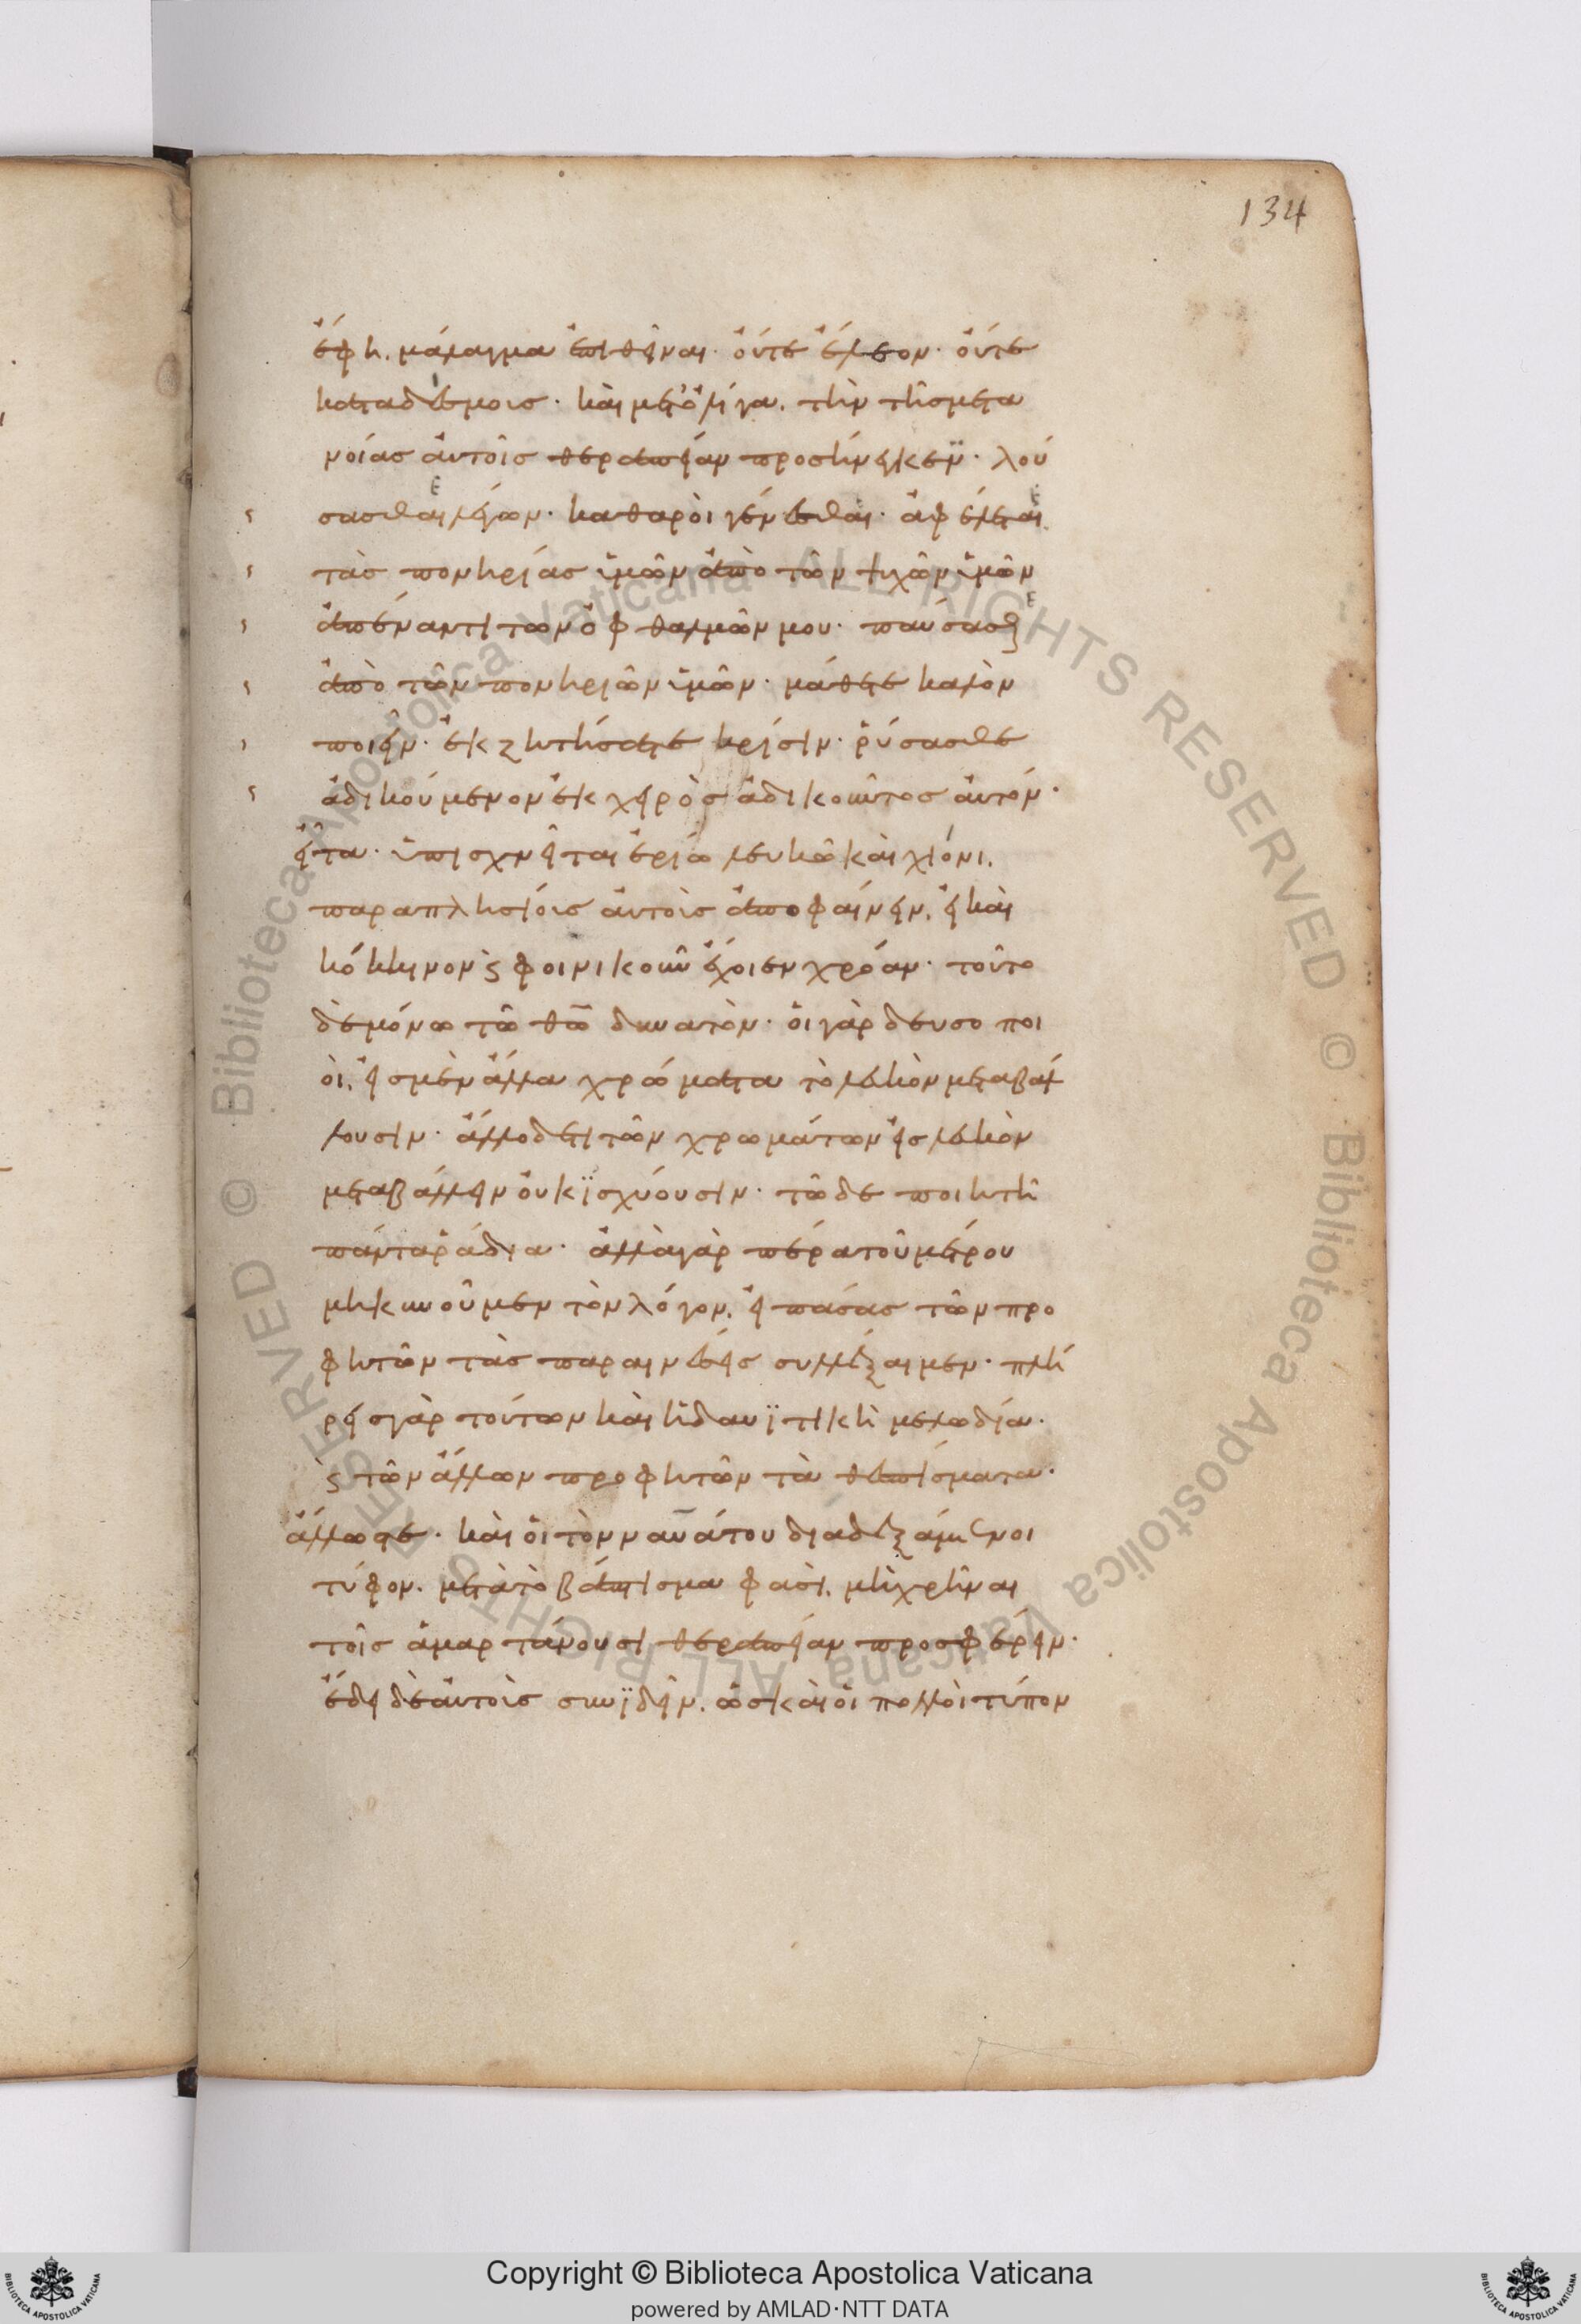 134
ἔφη. μάλαγμα ἐπιθῆναι· οὔτε ἔλεον· οὔτε
καταδέσμοις· καὶ μετ' ὀλίγα. τὴν τῆς μετα
νοίας αὐτοῖς θεραπείαν προσήνεγκεν· λού
σασθαι λέγων· καθαροὶ γένεσθαι· ἀφέλεται
τὰς πονηρίας ὑμῶν ἀπὸ τῶν ψυχῶν ὑμῶν
ἀπέναντι τῶν ὀφθαλμῶν μου· παύσασθε
ἀπὸ τῶν πονηριῶν ὑμῶν· μάθετε καλὸν
ποιεῖν· ἐκζητήσατε κρίσιν· ῥύσασθε
ἀδικούμενον ἐκ χειρὸς ἀδικοῦντος αὐτόν·
εἶτα· ὑπισχνεῖται ἐρίω λευκῶ καὶ χιόνι.
παραπλησίοις αὐτοὶς ἀποφαίνειν. εἰ καὶ
κόκκινον ϗ φοινικοῦν ἔχοιεν χρόαν· τοῦτο
δὲ μόνω τῶ θῶ δυνατὸν· οἱ γὰρ δευσοποι
οὶ. εἰς μὲν ἄλλα χρώματα τὸ λευκὸν μεταβάλ
λουσιν· ἄλλο δέ τι τῶν χρωμάτων εἰς λευκὸν
μεταβάλλειν οὐκ ἰσχύουσιν· τῶ δε ποιητῆ
πάντα ῥάδια· ἀλλὰ γὰρ πέρα τοῦ μέτρου
μηκυνοῦμεν τὸν λόγον. εἰ πάσας τῶν προ
φητῶν τὰς παραινέσεις συλλέξαιμεν· πλή
ρεις γὰρ τούτων καὶ ἡ δαυϊτικὴ μελωδία·
ϗ τῶν ἄλλων προφητῶν τὰ θεσπίσματα·
ἄλλως τε· καὶ οἱ τὸν ναυάτου διαδεξάμενοι
τύφον. μετὰ τὸ βάπτισμα φασὶ. μὴ χρῆναι
τοῖς ἁμαρτάνουσι θεραπείαν προσφέρειν·
ἔδει δὲ αὐτοὶς συνϊδεῖν. ὡς καὶ οἱ πολλοὶ τύπον
Copyright © Biblioteca Apostolica Vaticana
powered by AMLAD·NTT DATA